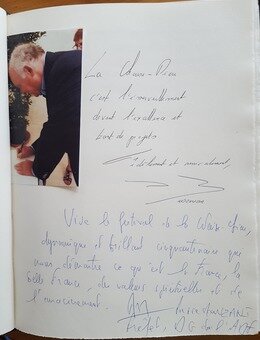 La Chaise-Dieu
c'est l'émerveillement
devant l'excellence et
tant de projets
Fidèlement et amicalement,
Vive le festival de la Chaise-Dieu,
dynamique et brillant cinquantenaire qui
nous démontre ce qu'est la France, la
belle France, des valeurs spirituelles et de
l'enracinement.
Préfet, DG de l'